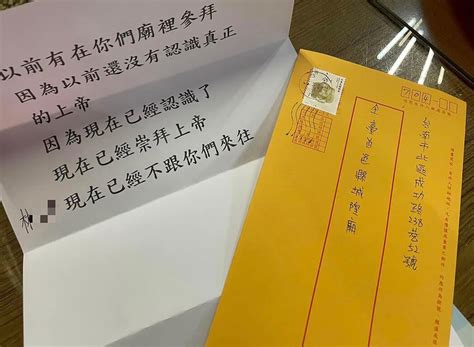 以前有在你們廟裡參拜
因為以前還沒有認識真正
的上帝
因為現在已經認識了
現在已經崇拜上帝
現在已經不跟你們來往
林
704
台南市北區成功路238巷52號
全臺首邑縣城隍廟